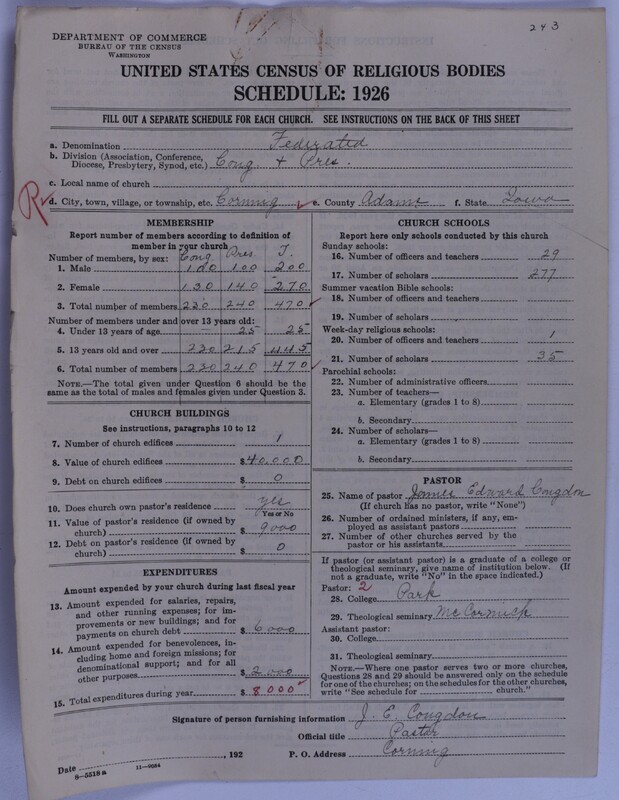 243
DEPARTMENT OF COMMERCE
BUREAU OF THE CENSUS
WASHINGTON
UNITED STATES CENSUS OF RELIGIOUS BODIES
SCHEDULE: 1926
FILL OUT A SEPARATE SCHEDULE FOR EACH CHURCH. SEE INSTRUCTIONS ON THE BACK OF THIS SHEET
a. Denomination Federated
b. Division (Association, Conference,
Diocese, Presbytery, Synod, etc.) Cong. + Pres.
c. Local name of church
R
d. City, town, village, or township, etc. Corning e. County Adams f. State Iowa
MEMBERSHIP
Report number of members according to definition of
member in your church
Number of members, by sex: Cong Pres. T.
1. Male 100 100 200
2. Female 130 140 270
3. Total number of members 230 240 470
Number of members under and over 13 years old:
4. Under 13 years of age 25 25
5. 13 years old and over 230 215 445
6. Total number of members 230 240 470
NOTE.—The total given under Question 6 should be
same as the total of males and females given under Question 3.
CHURCH BUILDINGS
See instructions, paragraphs 10 to 12
7. Number of church edifices 1
8. Value of church edifices $40,000
9. Debt on church edifices $ 0
10. Does church own pastor's residence yes
Yes or No
11. Value of pastor's residence (if owned by
church) $ 9000
12. Debt on pastor's residence (if owned by
church) $ 0
EXPENDITURES
Amount expended by your church during last fiscal year
13. Amount expended for salaries, repairs,
and other running expenses; for im-
provements or new buildings; and for
payments on church debt $ 6000
14. Amount expended for benevolences, in-
cluding home and foreign missions; for
denominational support; and for all
other purposes $ 2000
15. Total expenditures during year $ 8000
CHURCH SCHOOLS
Report here only schools conducted by this church
Sunday schools:
16. Number of officers and teachers 29
17. Number of scholars 277
Summer vacation Bible schools:
18. Number of officers and teachers
19. Number of scholars
Week-day religious schools:
20. Number of officers and teachers 1
21. Number of scholars 35
Parochial schools:
22. Number of administrative officers
23. Number of teachers—
a. Elementary (grades 1 to 8)
b. Secondary
24. Number of scholars—
a. Elementary (grades 1 to 8)
b. Secondary
PASTOR
25. Name of pastor James Edward Congdon
(If church has no pastor, write "None")
26. Number of ordained ministers, if any, em-
ployed as assistant pastors
27. Number of other churches served by the
pastor or his assistants
If pastor (or assistant pastor) is a graduate of a college or
theological seminary, give name of institution below. (If
not a graduate, write "No" in the space indicated.)
Pastor: 2
28. College Park
29. Theological seminary McCormick
Assistant pastor:
30. College
31. Theological seminary
NOTE.—Where one pastor serves two or more churches,
Questions 28 and 29 should be answered only on the schedule
for one of the churches; on the schedules for the other churches,
write "See schedule for church."
Signature of person furnishing information J. E. Congdon
Official title Pastor
Date , 192 P. O. Address Corning
8—5518a 11—9084